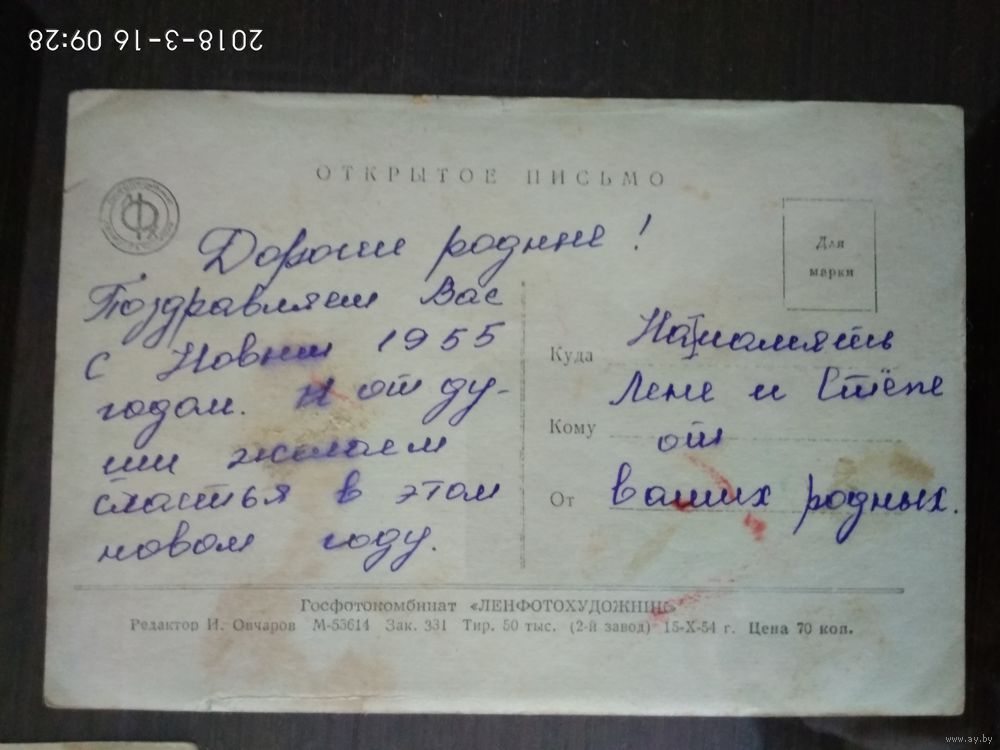 2018-3-16 09:28
ОТКРЫТОЕ ПИСЬМО
Для
марки
Дорогие родные!
Поздравляем Вас
с Новым 1955
годом. И от ду-
ши желаем
счастья в этом
новом году.
Куда На память
Лене и Стёпе
Кому от
От ваших родных.
Госфотокомбинат «ЛЕНФОТОХУДОЖНИК»
Редактор И. Овчаров М-55614 Зак. 331 Тир. 50 тыс. (2-й завод) 15-X-54 г. Цена 70 коп.
www.ay.by